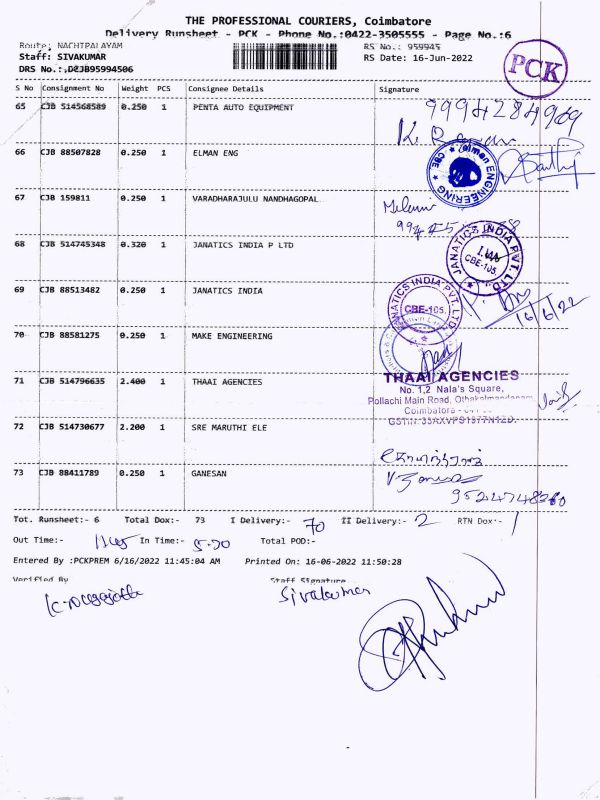 THE PROFESSIONAL COURIERS, Coimbatore
Delivery Runsheet - PCK - Phone No.:0422-3505555 - Page No.:6
Route: NACHIPALAYAM
RS No.: 959945
Staff: SIVAKUMAR
RS Date: 16-Jun-2022
DRS No.:,DCJB95994506
PCK
S No Consignment No Weight PCS Consignee Details Signature
65 CJB 514568589 0.250 1 PENTA AUTO EQUIPMENT
66 CJB 88507828 0.250 1 ELMAN ENG
Elman ENGINEERING * CBE *
67 CJB 159811 0.250 1 VARADHARAJULU NANDHAGOPAL
68 CJB 514745348 0.320 1 JANATICS INDIA P LTD
JANATICS INDIA PVT. LTD. CBE-105.
69 CJB 88513482 0.250 1 JANATICS INDIA
JANATICS INDIA PVT. LTD. CBE-105.
16/6/22
70 CJB 88581275 0.250 1 MAKE ENGINEERING
71 CJB 514796635 2.400 1 THAAI AGENCIES
THAAI AGENCIES
No. 1,2 Nala's Square,
Pollachi Main Road, Othakalmandapam
Coimbatore -
72 CJB 514730677 2.200 1 SRE MARUTHI ELE
73 CJB 88411789 0.250 1 GANESAN
Tot. Runsheet:- 6 Total Dox:- 73 I Delivery:- 70 II Delivery:- 2 RTN Dox:- 1
Out Time:- In Time:- 5.20 Total POD:-
Entered By :PCKPREM 6/16/2022 11:45:04 AM Printed On: 16-06-2022 11:50:28
Verified By Staff Signature
Sivakumar